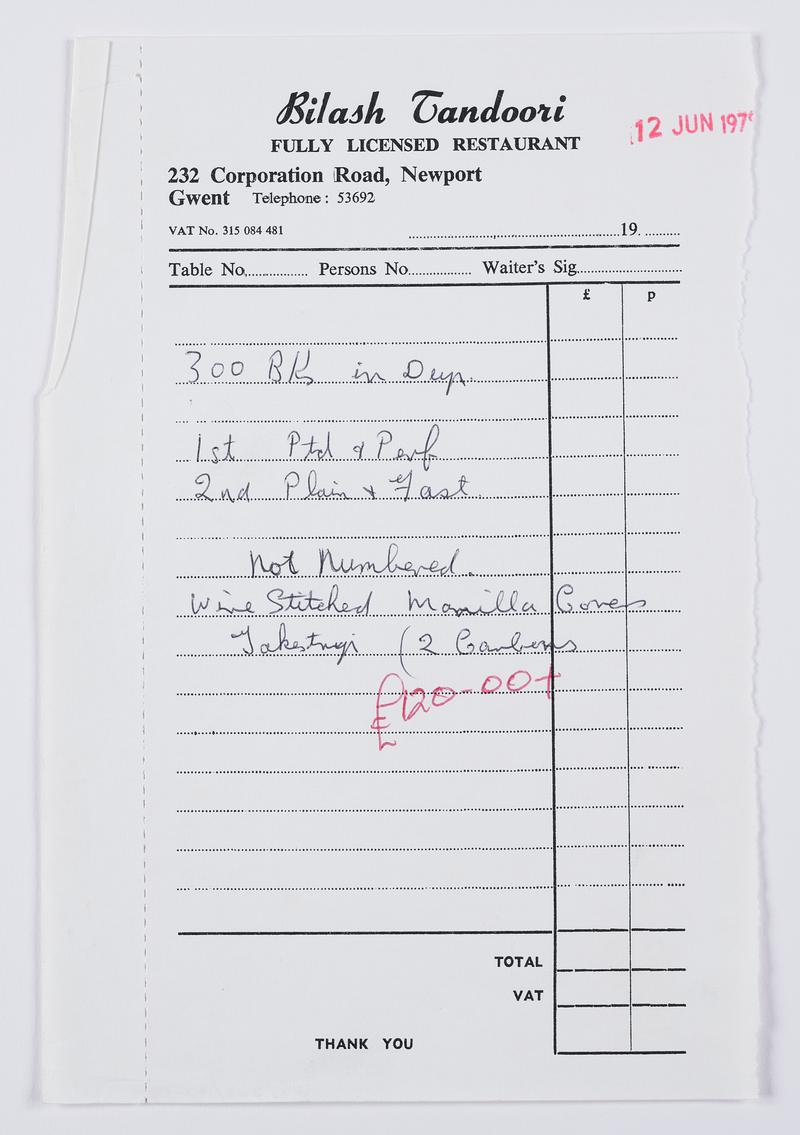 Bilash Tandoori
12 JUN 197
FULLY LICENSED RESTAURANT
232 Corporation Road, Newport
Gwent Telephone: 53692
VAT No. 315 084 481 19
Table No. Persons No. Waiter's Sig.
£ p
300 BKs in Dup.
1st Ptd & Perf
2nd Plain & Fast.
Not Numbered.
Wire Stitched Manilla Covers
(2 Carbons
£120-00+
TOTAL
VAT
THANK YOU